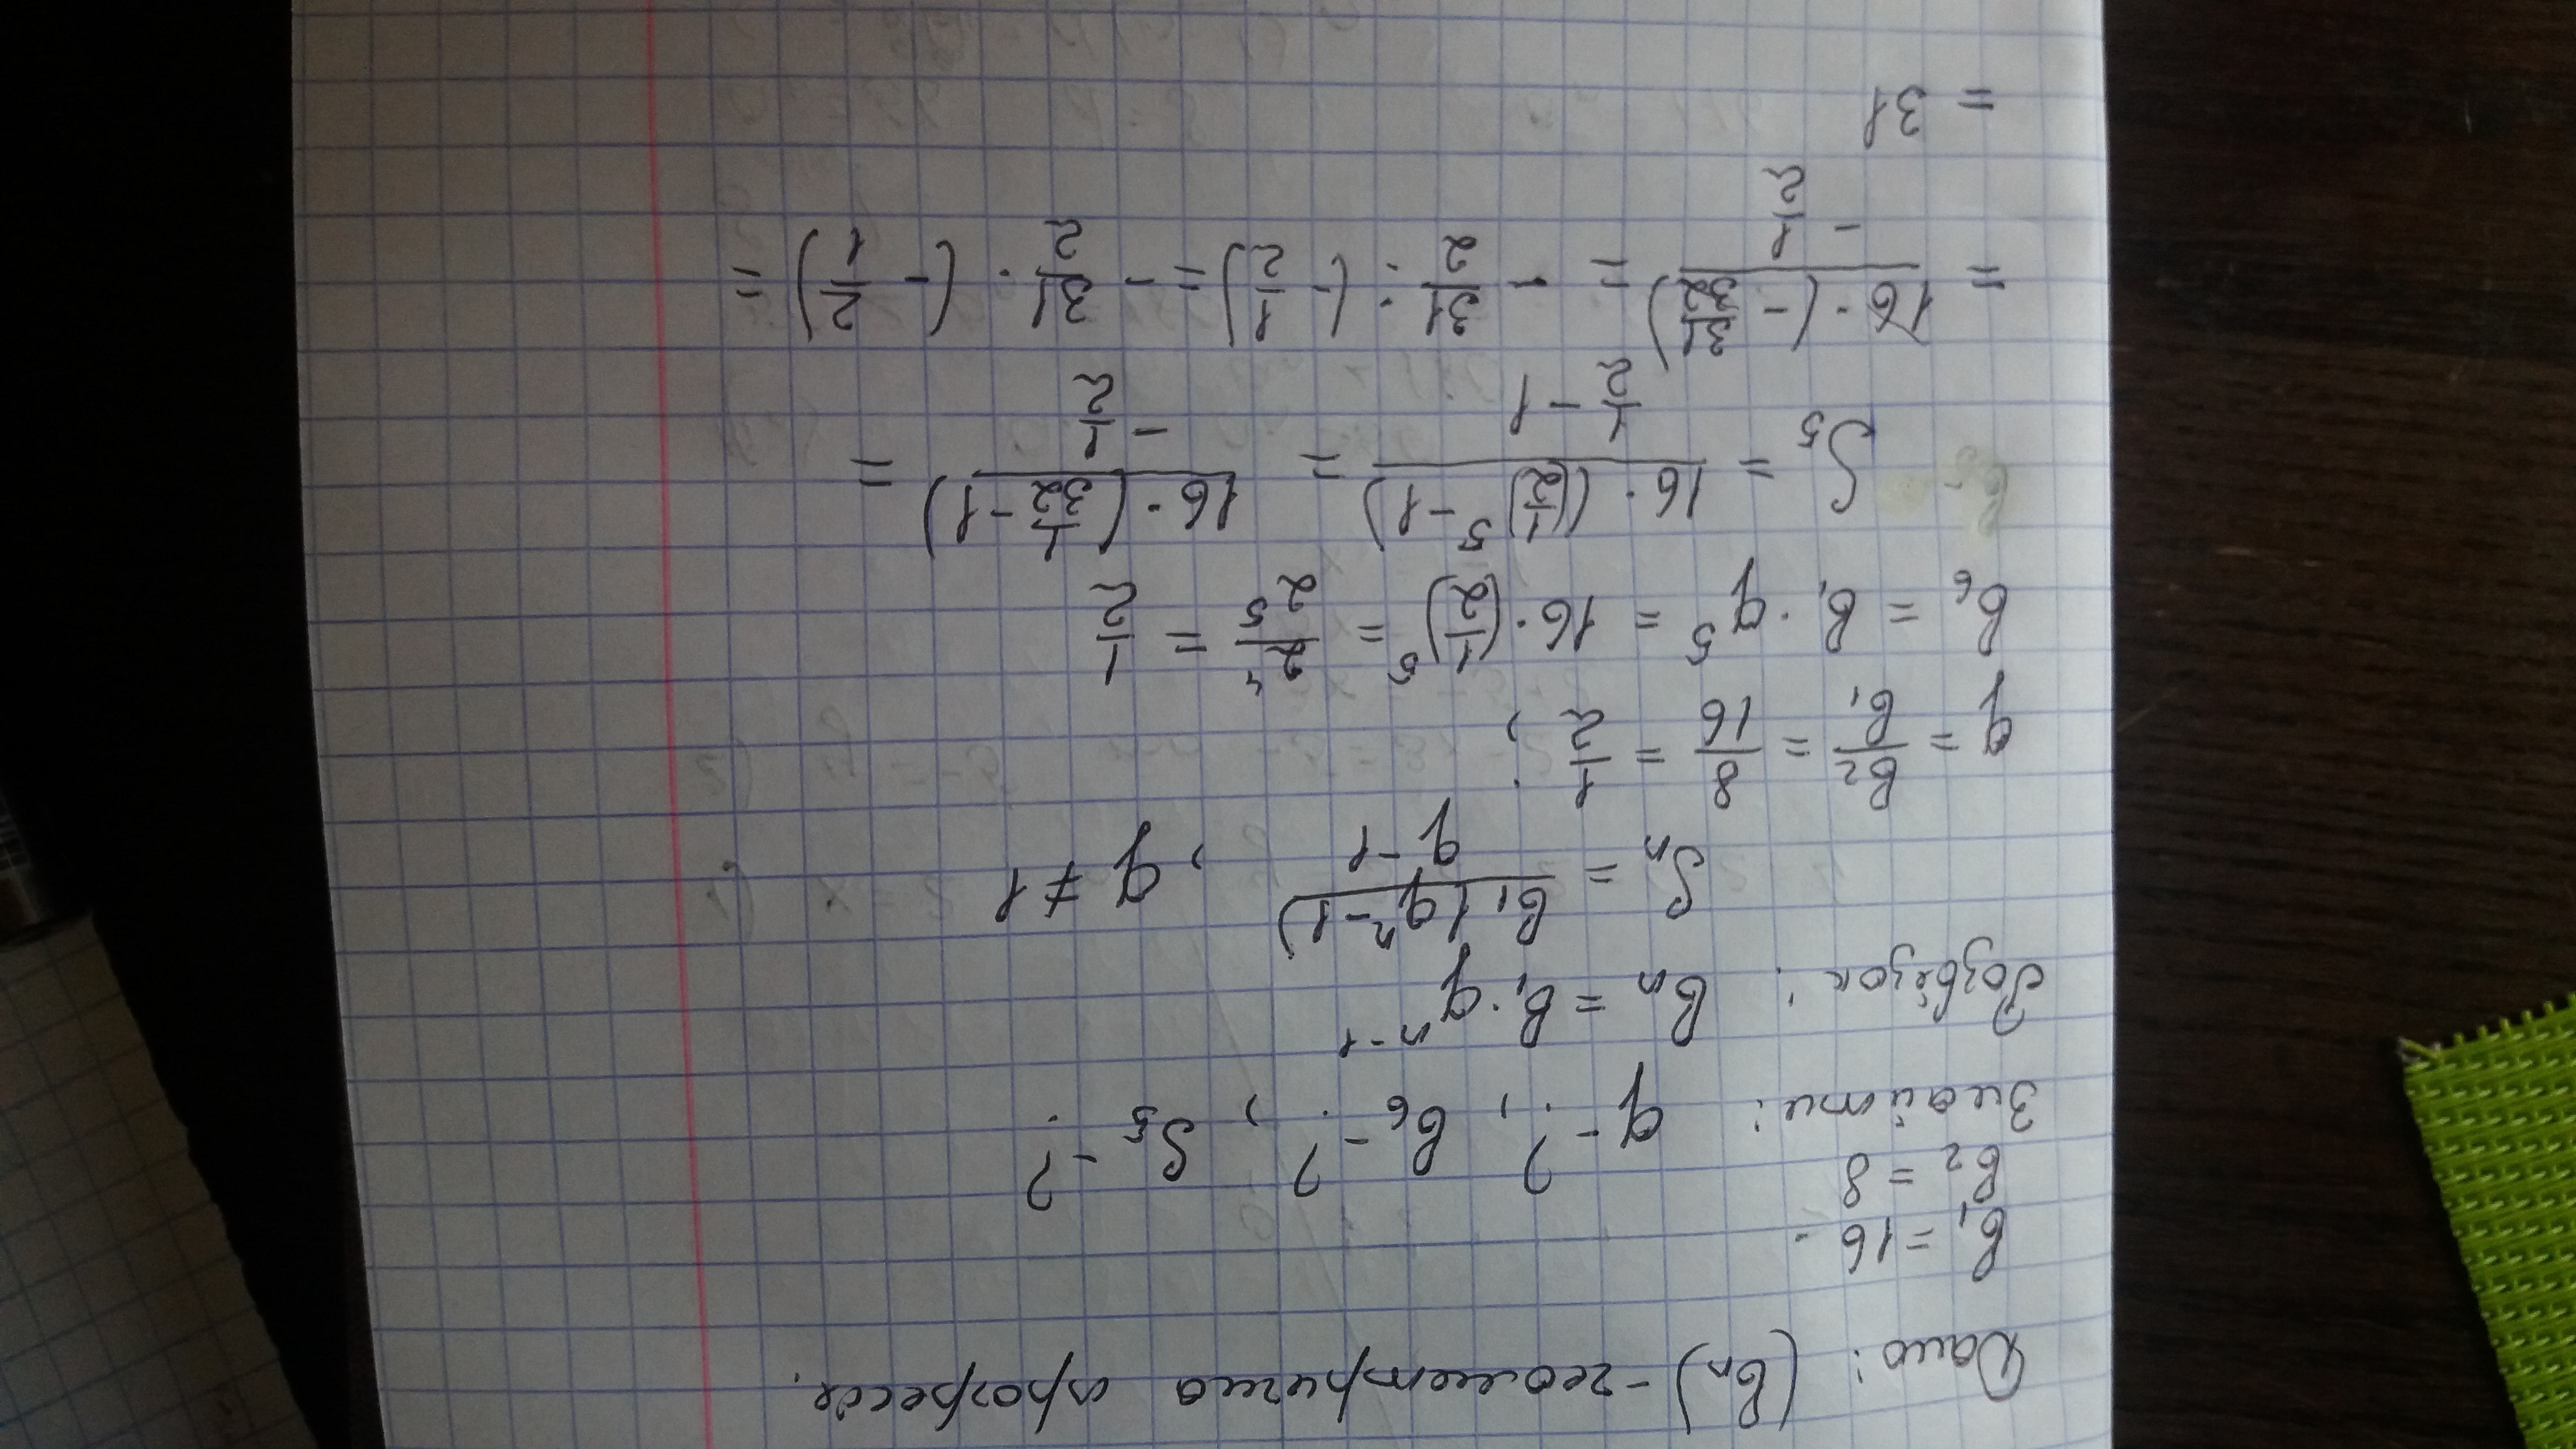 Дано: (bₙ) - геометрична прогресія.
b₁ = 16
b₂ = 8
Знайти: q - ?, b₆ - ?, S₅ - ?
Розвʼязок: bₙ = b₁ · qⁿ⁻¹
Sₙ = b₁(qⁿ - 1) / (q - 1), q ≠ 1
q = b₂/b₁ = 8/16 = 1/2;
b₆ = b₁ · q⁵ = 16 · (1/2)⁵ = 2⁴/2⁵ = 1/2
S₅ = 16 · ((1/2)⁵ - 1) / (1/2 - 1) = 16 · (1/32 - 1) / (- 1/2) =
= 16 · (- 31/32) / (- 1/2) = - 31/2 : (- 1/2) = - 31/2 · (- 2/1) =
= 31